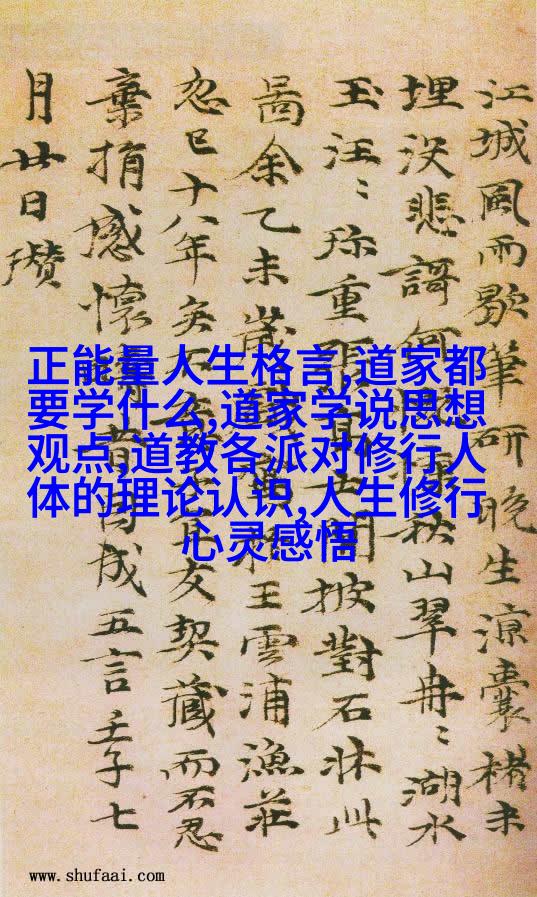 正能量人生格言,道家都
要学什么,道家学说思想
观点,道教各派对修行人
体的理论认识,人生修行
心灵感悟
江城風雨歇筆研晚生涼囊楮未
埋没悲謌何秋山翠冉〻湖水
玉汪〻珎重披對石牀此
啚余乙未歲王雲浦漁莊
忽已十八年矣不友契藏而不忍
棄捐感懷成五言壬子七
月廿日瓚
www.shufaai.com